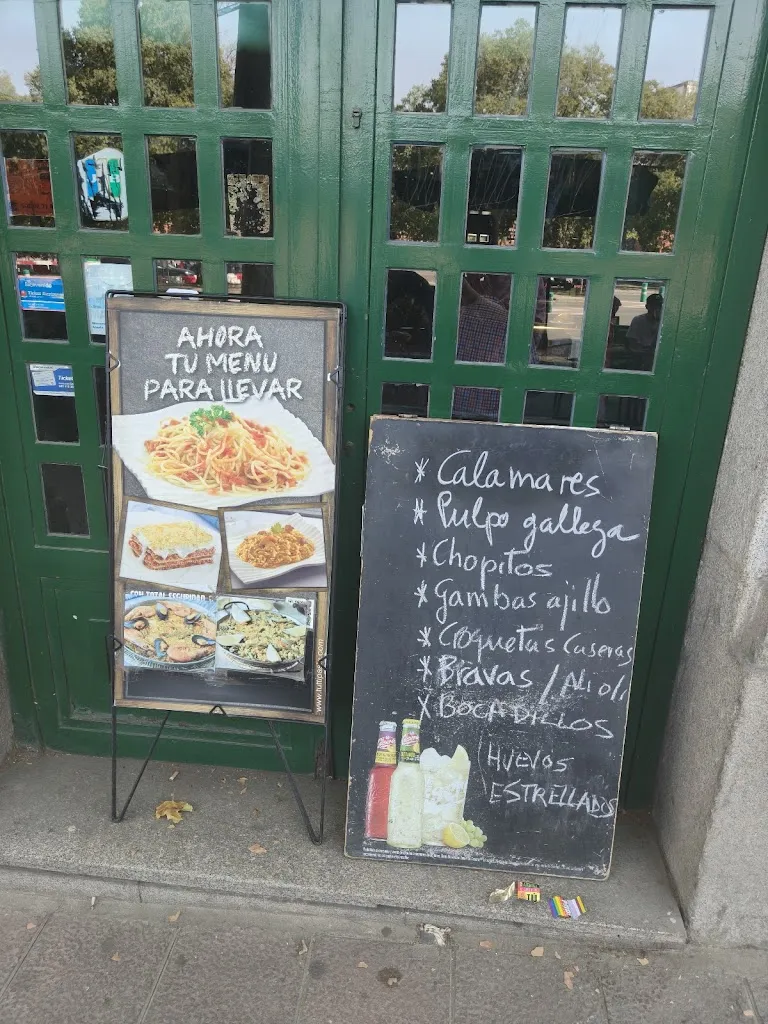 AHORA
TU MENU
PARA LLEVAR
CON TOTAL SEGURIDAD
* Calamares
* Pulpo gallega
* Chopitos
* Gambas ajillo
* Croquetas Caseras
* Bravas / Ali oli
* BOCADILLOS
HUEVOS
ESTRELLADOS